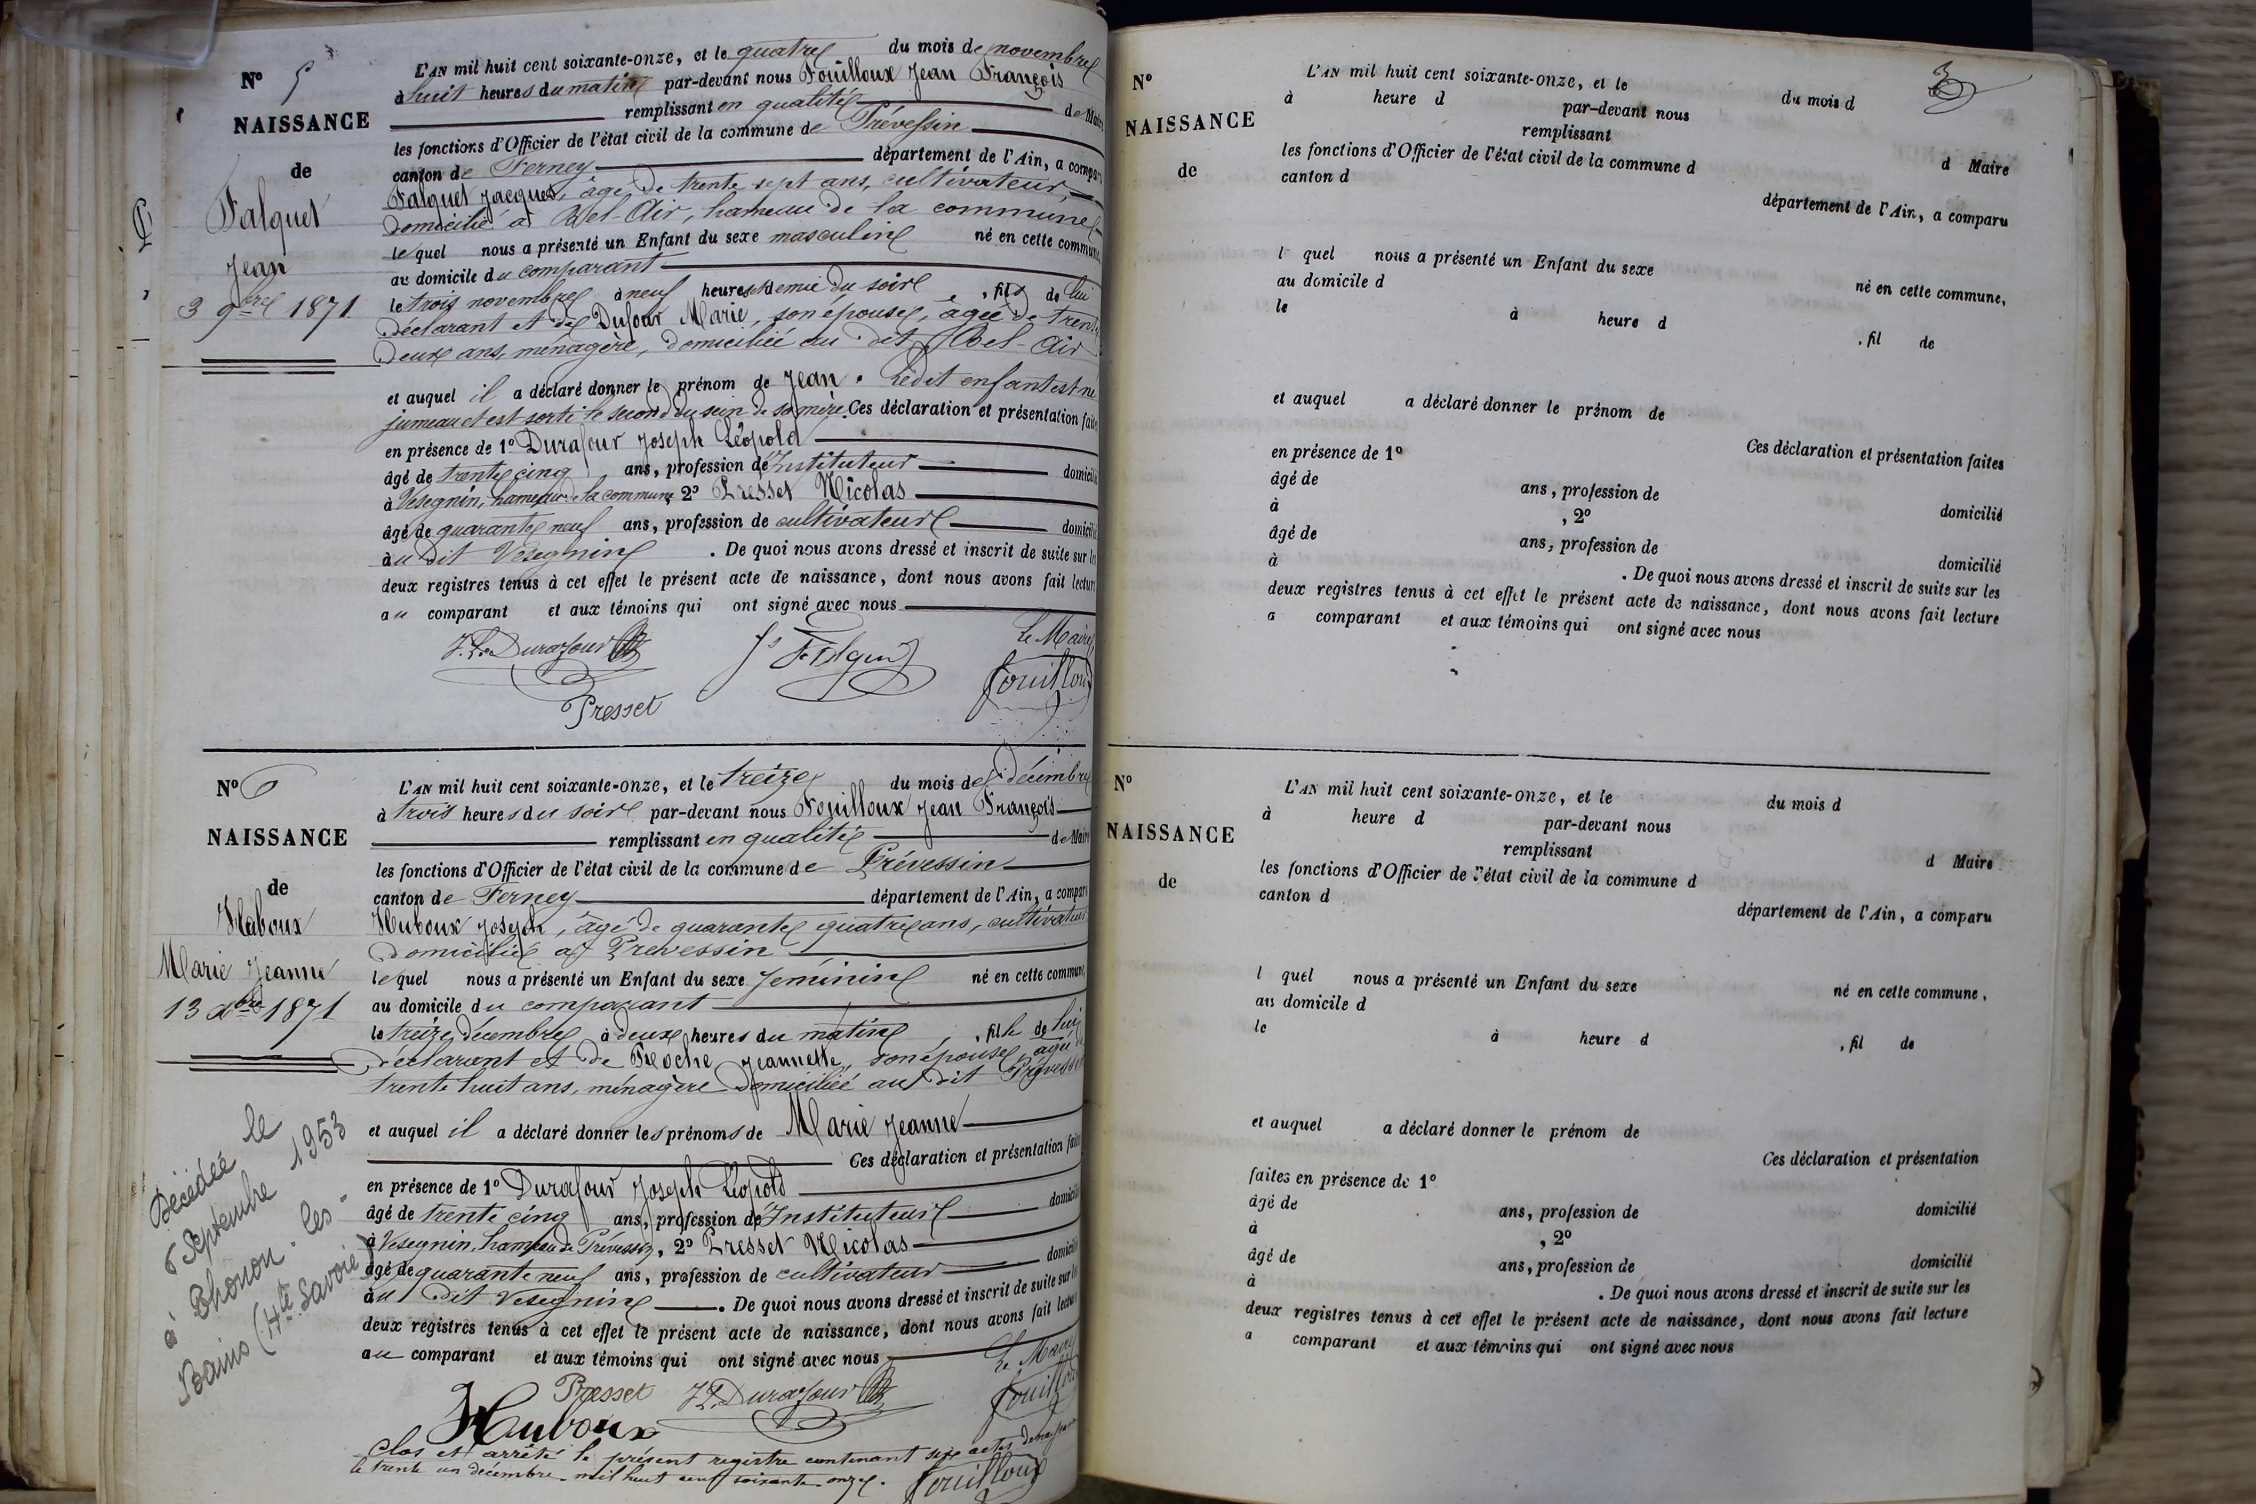 N° 5
NAISSANCE
de
Falquet
Jean
3 9bre 1871
L'AN mil huit cent soixante-onze, et le quatre du mois de novembre
à huit heures du matin par-devant nous Fouilloux Jean François
remplissant en qualité de Maire
les fonctions d'Officier de l'état civil de la commune de Prévessin
canton de Ferney département de l'Ain, a comparu
Falquet Jacques, âgé de trente sept ans, cultivateur,
domicilié à Bel-Air, hameau de la commune
lequel nous a présenté un Enfant du sexe masculin né en cette commune,
au domicile du comparant
le trois novembre à neuf heures et demie du soir, fils de lui
déclarant et de Dufour Marie, son épouse, âgée de trente
deux ans, ménagère, domiciliée au dit Bel-Air
et auquel il a déclaré donner le prénom de Jean. Ledit enfant est né
jumeau et est sorti le second du sein de sa mère. Ces déclaration et présentation faites
en présence de 1° Durafour Joseph Léopold
âgé de trente cinq ans, profession de Instituteur domicilié
à Vesegnin, hameau de la commune 2° Presset Nicolas
âgé de quarante neuf ans, profession de cultivateur domicilié
au dit Vesegnin. De quoi nous avons dressé et inscrit de suite sur les
deux registres tenus à cet effet le présent acte de naissance, dont nous avons fait lecture
au comparant et aux témoins qui ont signé avec nous
J. L. Durafour Js Falquet Le Maire
Fouilloux
Presset
N° 6
NAISSANCE
de
Huboux
Marie Jeanne
13 Xbre 1871
Décédée le
6 Septembre 1953
à Thonon-les-
Bains (Hte Savoie)
L'AN mil huit cent soixante-onze, et le treize du mois de décembre
à trois heures du soir par-devant nous Fouilloux Jean François
remplissant en qualité de Maire
les fonctions d'Officier de l'état civil de la commune de Prévessin
canton de Ferney département de l'Ain, a comparu
Huboux Joseph, âgé de quarante quatre ans, cultivateur
domicilié à Prevessin
lequel nous a présenté un Enfant du sexe féminin né en cette commune,
au domicile du comparant
le treize décembre à deux heures du matin, fille de lui
déclarant et de Roche Jeannette, son épouse, âgée de
trente huit ans, ménagère domiciliée au dit Prévessin
et auquel il a déclaré donner les prénoms de Marie Jeanne
Ces déclaration et présentation faites
en présence de 1° Durafour Joseph Léopold
âgé de trente cinq ans, profession de Instituteur domicilié
à Vesegnin, hameau de Prévessin, 2° Presset Nicolas
âgé de quarante neuf ans, profession de cultivateur domicilié
au dit Vesegnin. De quoi nous avons dressé et inscrit de suite sur les
deux registres tenus à cet effet le présent acte de naissance, dont nous avons fait lecture
au comparant et aux témoins qui ont signé avec nous
Le Maire
Presset J. L. Durafour Fouilloux
Huboux
Clos et arrêté le présent registre contenant six actes de naissance
le trente un décembre mil huit cent soixante onze.
Fouilloux
3
N°
NAISSANCE
de
L'AN mil huit cent soixante-onze, et le du mois d
à heure d par-devant nous
remplissant d Maire
les fonctions d'Officier de l'état civil de la commune d
canton d département de l'Ain, a comparu
l quel nous a présenté un Enfant du sexe né en cette commune,
au domicile d
le à heure d , fil de
et auquel a déclaré donner le prénom de
Ces déclaration et présentation faites
en présence de 1°
âgé de ans, profession de domicilié
à , 2°
âgé de ans, profession de domicilié
à . De quoi nous avons dressé et inscrit de suite sur les
deux registres tenus à cet effet le présent acte de naissance, dont nous avons fait lecture
a comparant et aux témoins qui ont signé avec nous
N°
NAISSANCE
de
L'AN mil huit cent soixante-onze, et le du mois d
à heure d par-devant nous
remplissant d Maire
les fonctions d'Officier de l'état civil de la commune d
canton d département de l'Ain, a comparu
l quel nous a présenté un Enfant du sexe né en cette commune,
au domicile d
le à heure d , fil de
et auquel a déclaré donner le prénom de
Ces déclaration et présentation
faites en présence de 1°
âgé de ans, profession de domicilié
à , 2°
âgé de ans, profession de domicilié
à . De quoi nous avons dressé et inscrit de suite sur les
deux registres tenus à cet effet le présent acte de naissance, dont nous avons fait lecture
a comparant et aux témoins qui ont signé avec nous